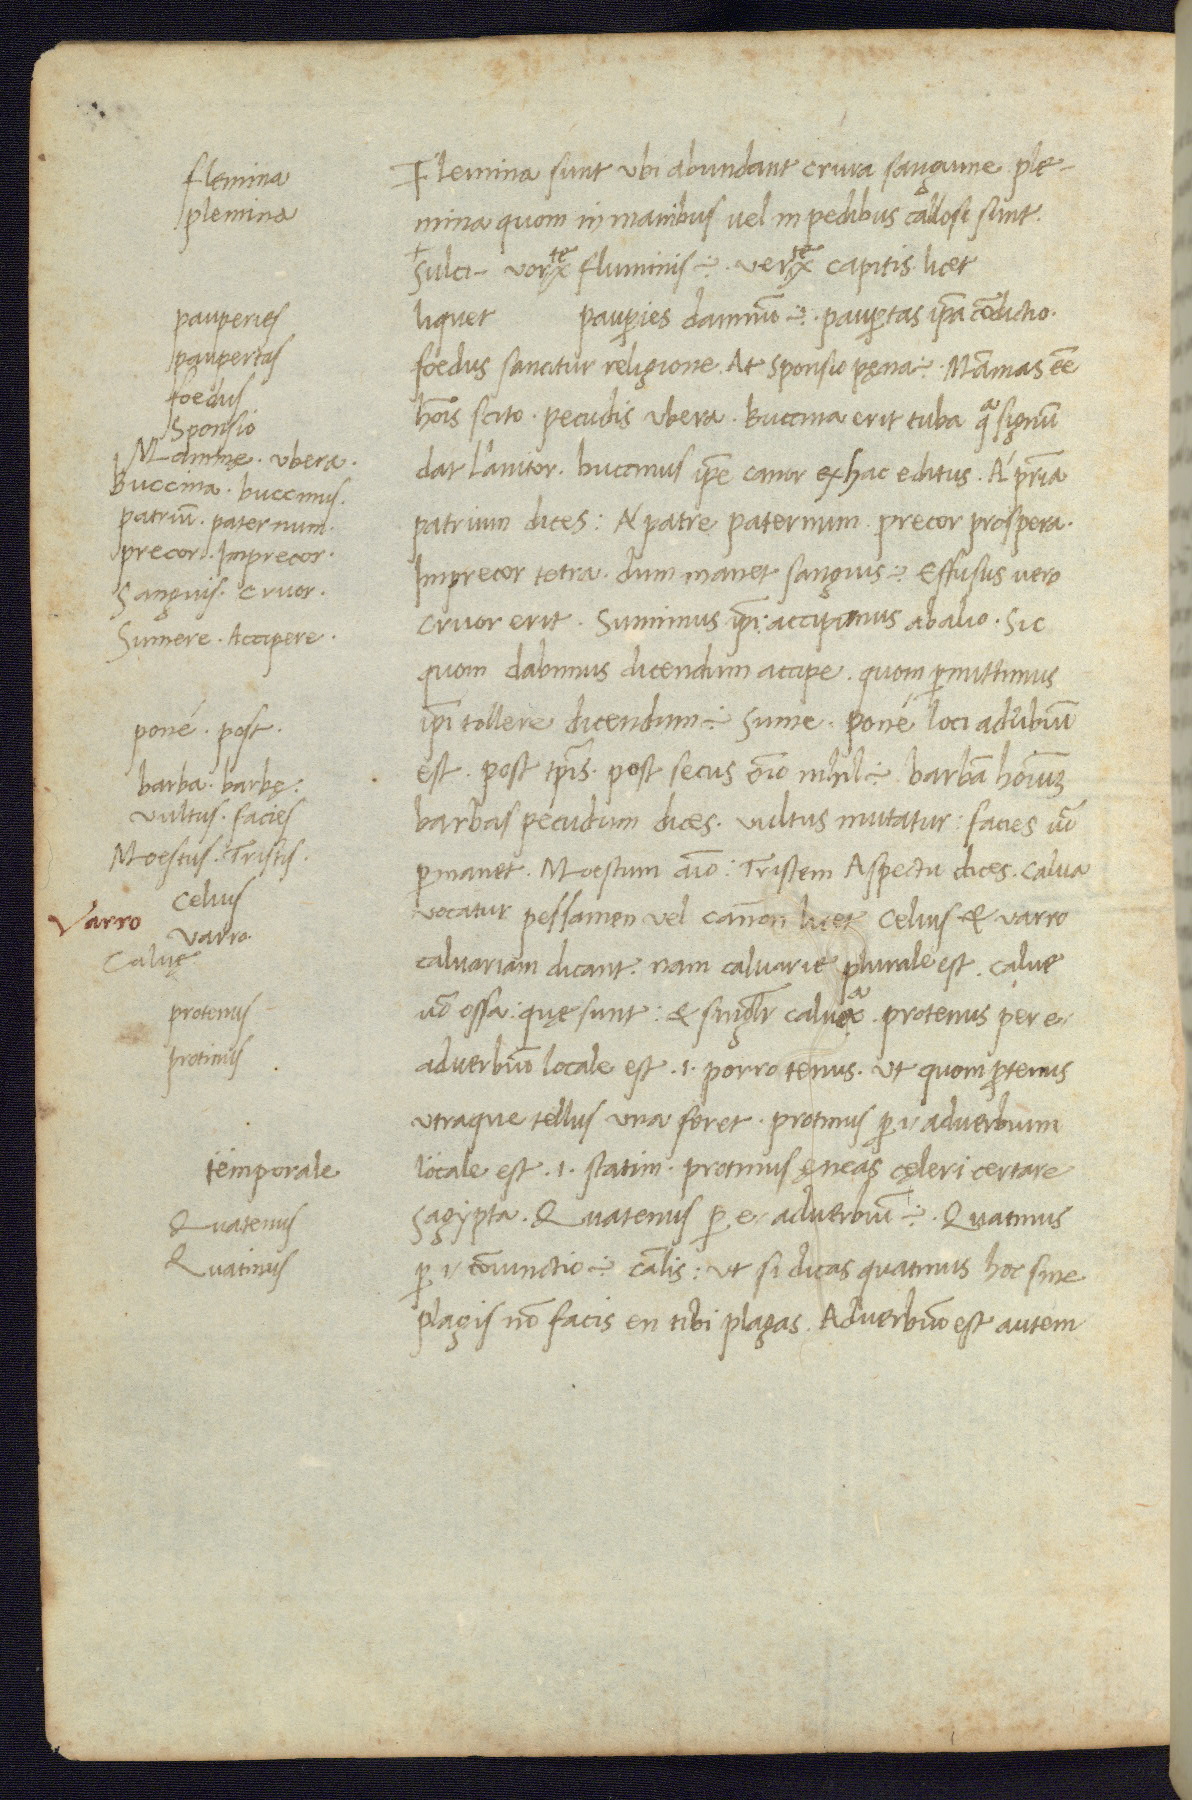 flemina
plemina
pauperies
paupertas
foedus
Sponsio
Mammę. vbera.
Buccina. buccinus.
patriū. paternum.
precor. Imprecor.
Sanguis. Cruor.
Sumere. Accipere.
poné. post.
barba. barbę:
vultus. facies
Moestus. Tristis.
Celius
Varro
varro.
Caluę
protenus
protinus
temporale
Quatenus
Quatinus
Flemina sunt vbi abundant crura sanguine ple-
mina quom in manibus uel in pedibus callosi sunt.
Sulci- vortex fluminis ÷. vertex capitis licet
liquet pauꝑies damnū ÷. pauꝑtas ip̄a cōdictio.
foedus sancitur religione. At sponsio pęna ÷. Māmas ēē
hoīs scito. pecudis vbera. Buccina erit tuba qᵃ signū
dat Lanitor. buccinus ip̄e canor ex hac editus. A' pr̄ia
patrium dices: A' patre paternum. precor prospera.
Imprecor tetra. dum manet sanguis ÷ effusus uero
cruor erit. Sumimus ip̄i: accipimus ab alio. Sic
quom dabimus dicendum accipe. quom ꝑmittimus
ip̄i tollere dicendum ÷ sume. poné loci aduerbiū
est. post tp̄ris. post secus oīo nihil ÷. barbā hoiūꝫ
barbas pecudum dices. vultus mutatur: facies uō
ꝑmanet. Moestum aīo: Tristem Aspectu dices. Calua
vocatur pessamen vel cannon licet Celius & varro
caluariam dicant. nam caluarie plurale est. calue
uō ossa: quę sunt: & singlr̄ calua. protenus per e
aduerbiū locale est. i. porro tenus. vt quom ꝓtenus
vtraque tellus vna foret. protinus ꝑ i aduerbium
locale est. i. statim. protinus ęneas cęleri certare
sagypta. Quatenus ꝑ e aduerbiū ÷. Quatinus
ꝑ i coniunctio ÷ cālis: vt si dicas quatinus hoc sine
plagis nō facis en tibi plagas. Aduerbiū est autem